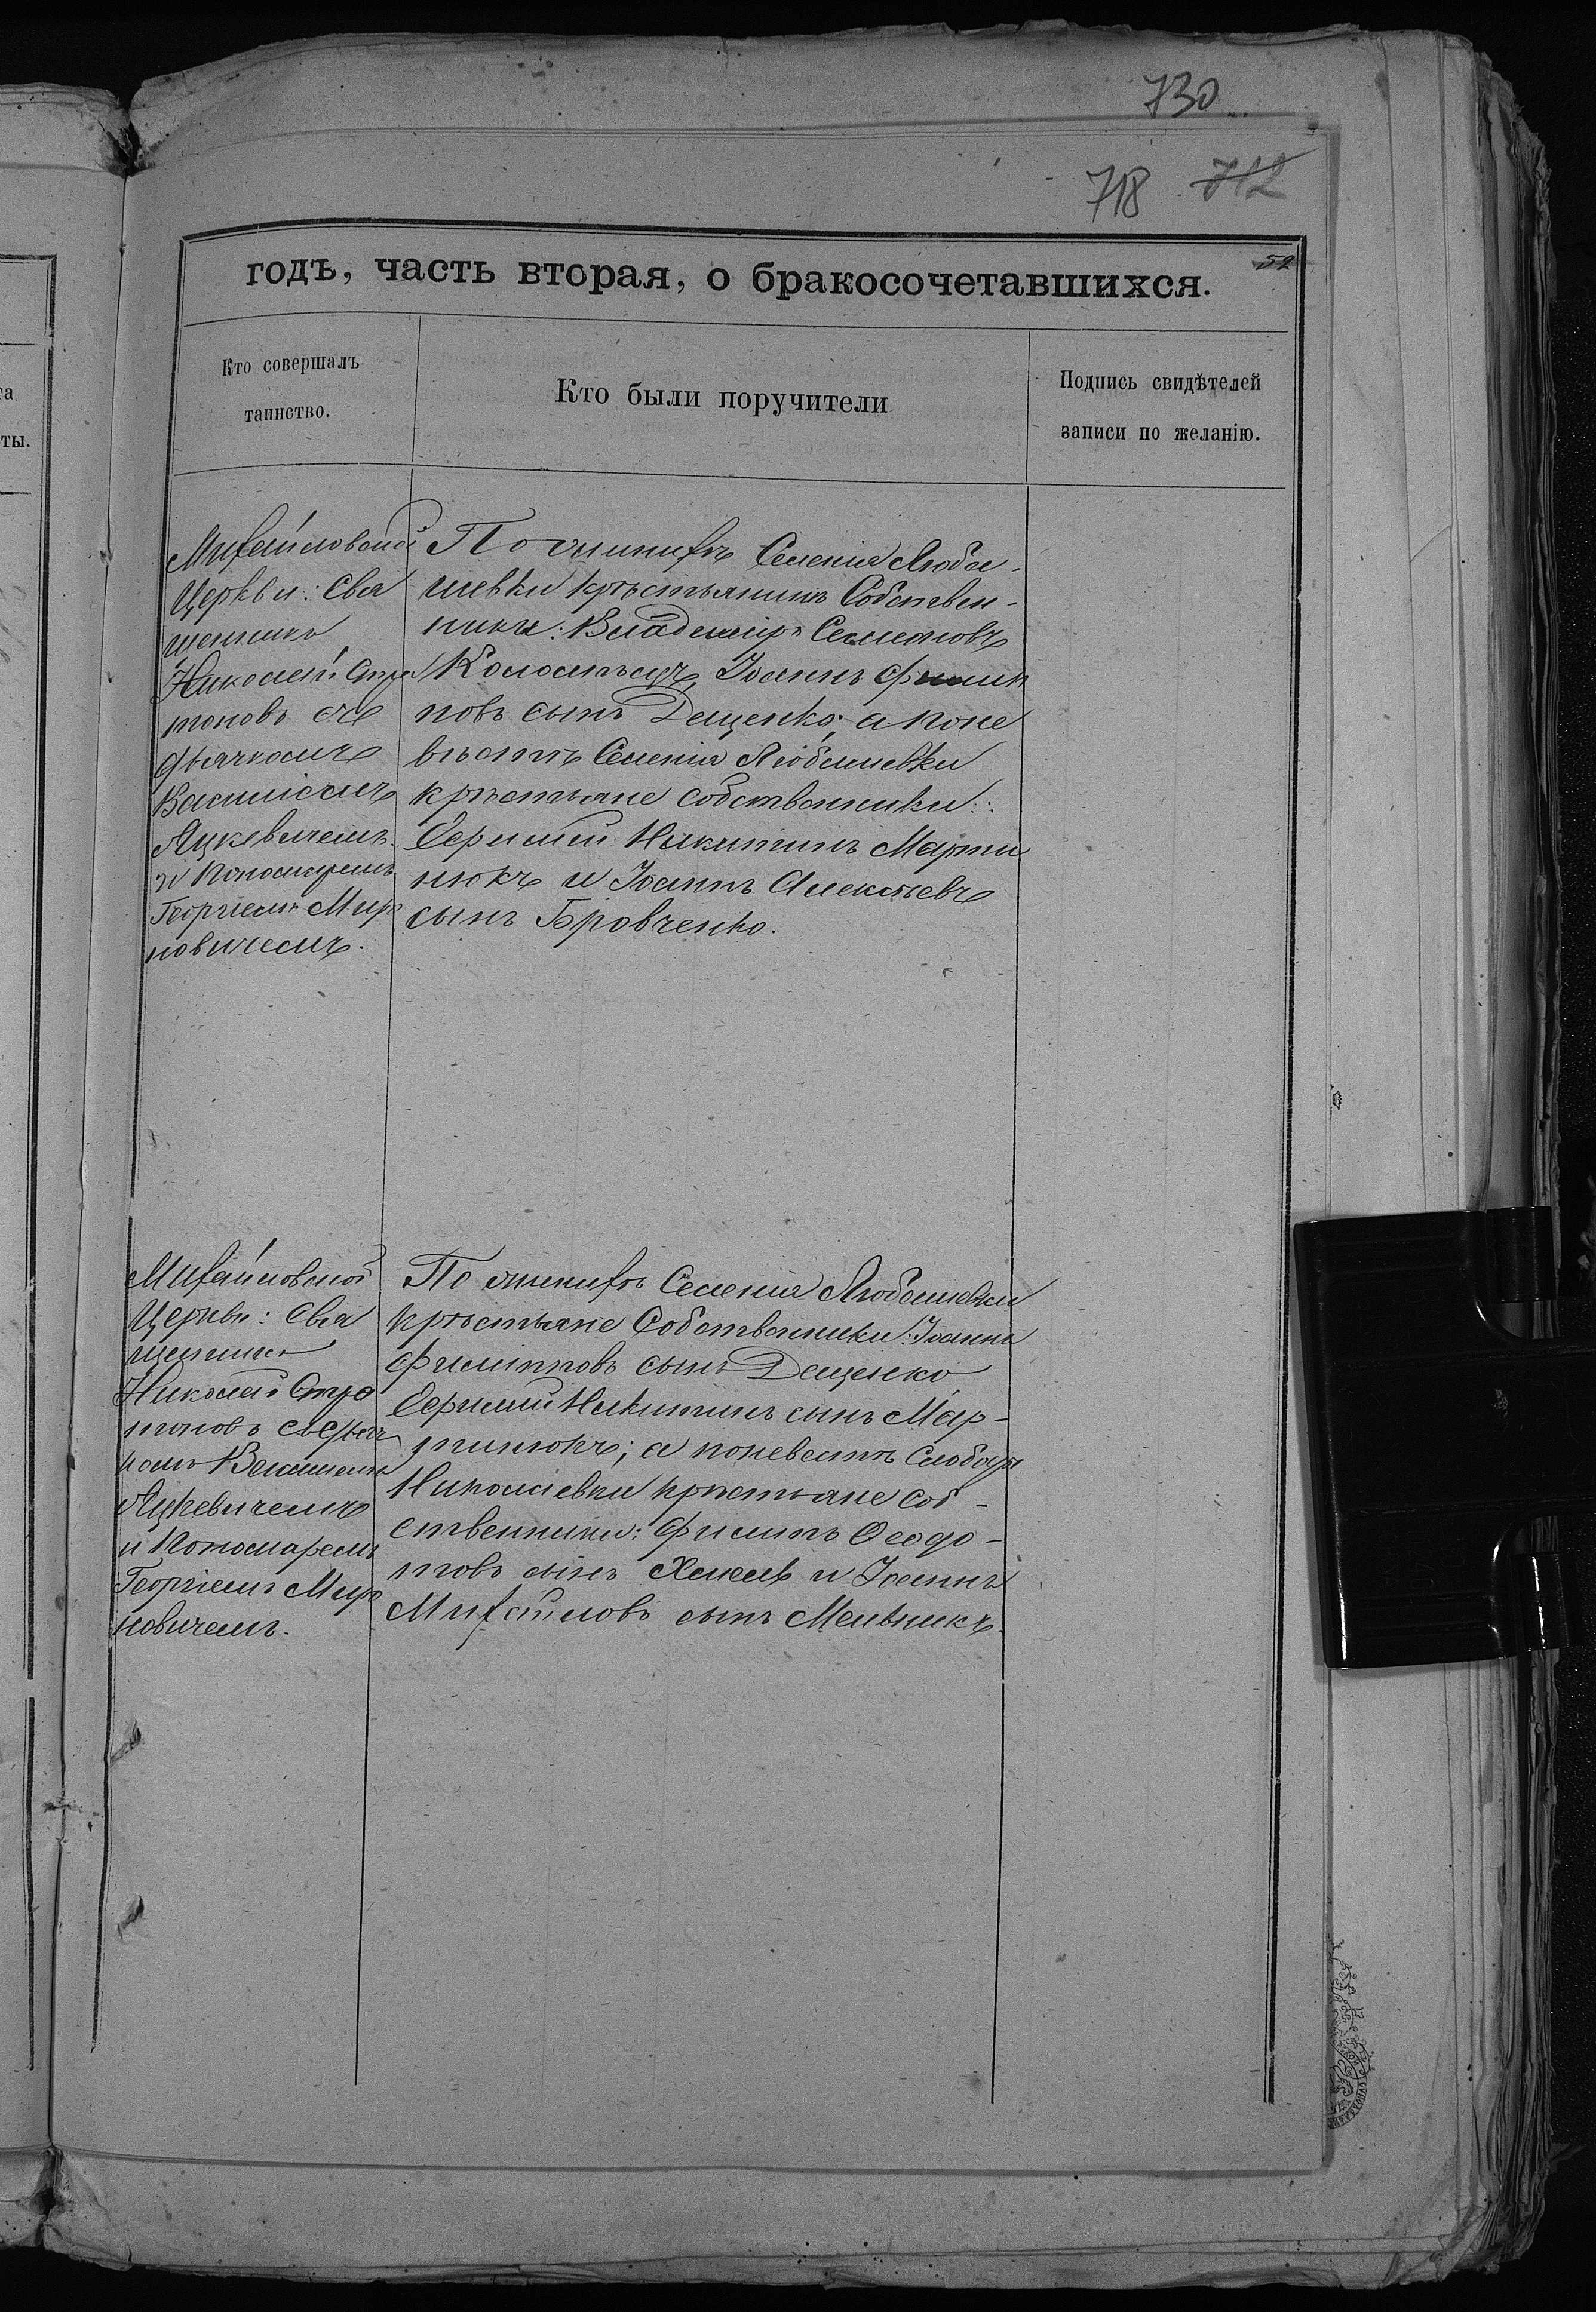 730
718 712
годъ, часть вторая, о бракосочетавшихся.
52
Кто совершалъ
таинство.
Кто были поручители
Подпись свидѣтелей
записи по желанію.
Михайловской
Церкви: Свя
щенникъ
Николай Стра
тоновъ съ
дьячкомъ
Василіемъ
Яцкевичемъ
и Пономаремъ
Георгіемъ Мир
новичемъ.
По женихѣ Селенія Люба-
шевки крѣстьянинъ Собствен-
никъ: Владимиръ Семеновъ
Коломѣецъ, Іоаннъ Филип
повъ сынъ Деценко; а поне
вѣстѣ Селенія Любашевки
крѣстьяне собственники:
Сергій Никитинъ Марти
нюкъ и Іоаннъ Алексѣевъ
сынъ Бровченко.
Михайловской
Церкви: Свя
щенникъ
Николай Стра
тоновъ съ дьяч
комъ Василіемъ
Яцкевичемъ
и Пономаремъ
Георгіемъ Мир
новичемъ.
По женихѣ Селенія Любашевки
крѣстьяне Собственники: Іоаннъ
Филипповъ сынъ Деценко
Никитинъ сынъ Мар-
тинюкъ; а поневѣстѣ Слободы
Николаевки крѣстьяне соб-
ственники: Филипъ Ѳеодо-
товъ сынъ и Іоаннъ
Михайловъ сынъ Мельникъ.
ты.